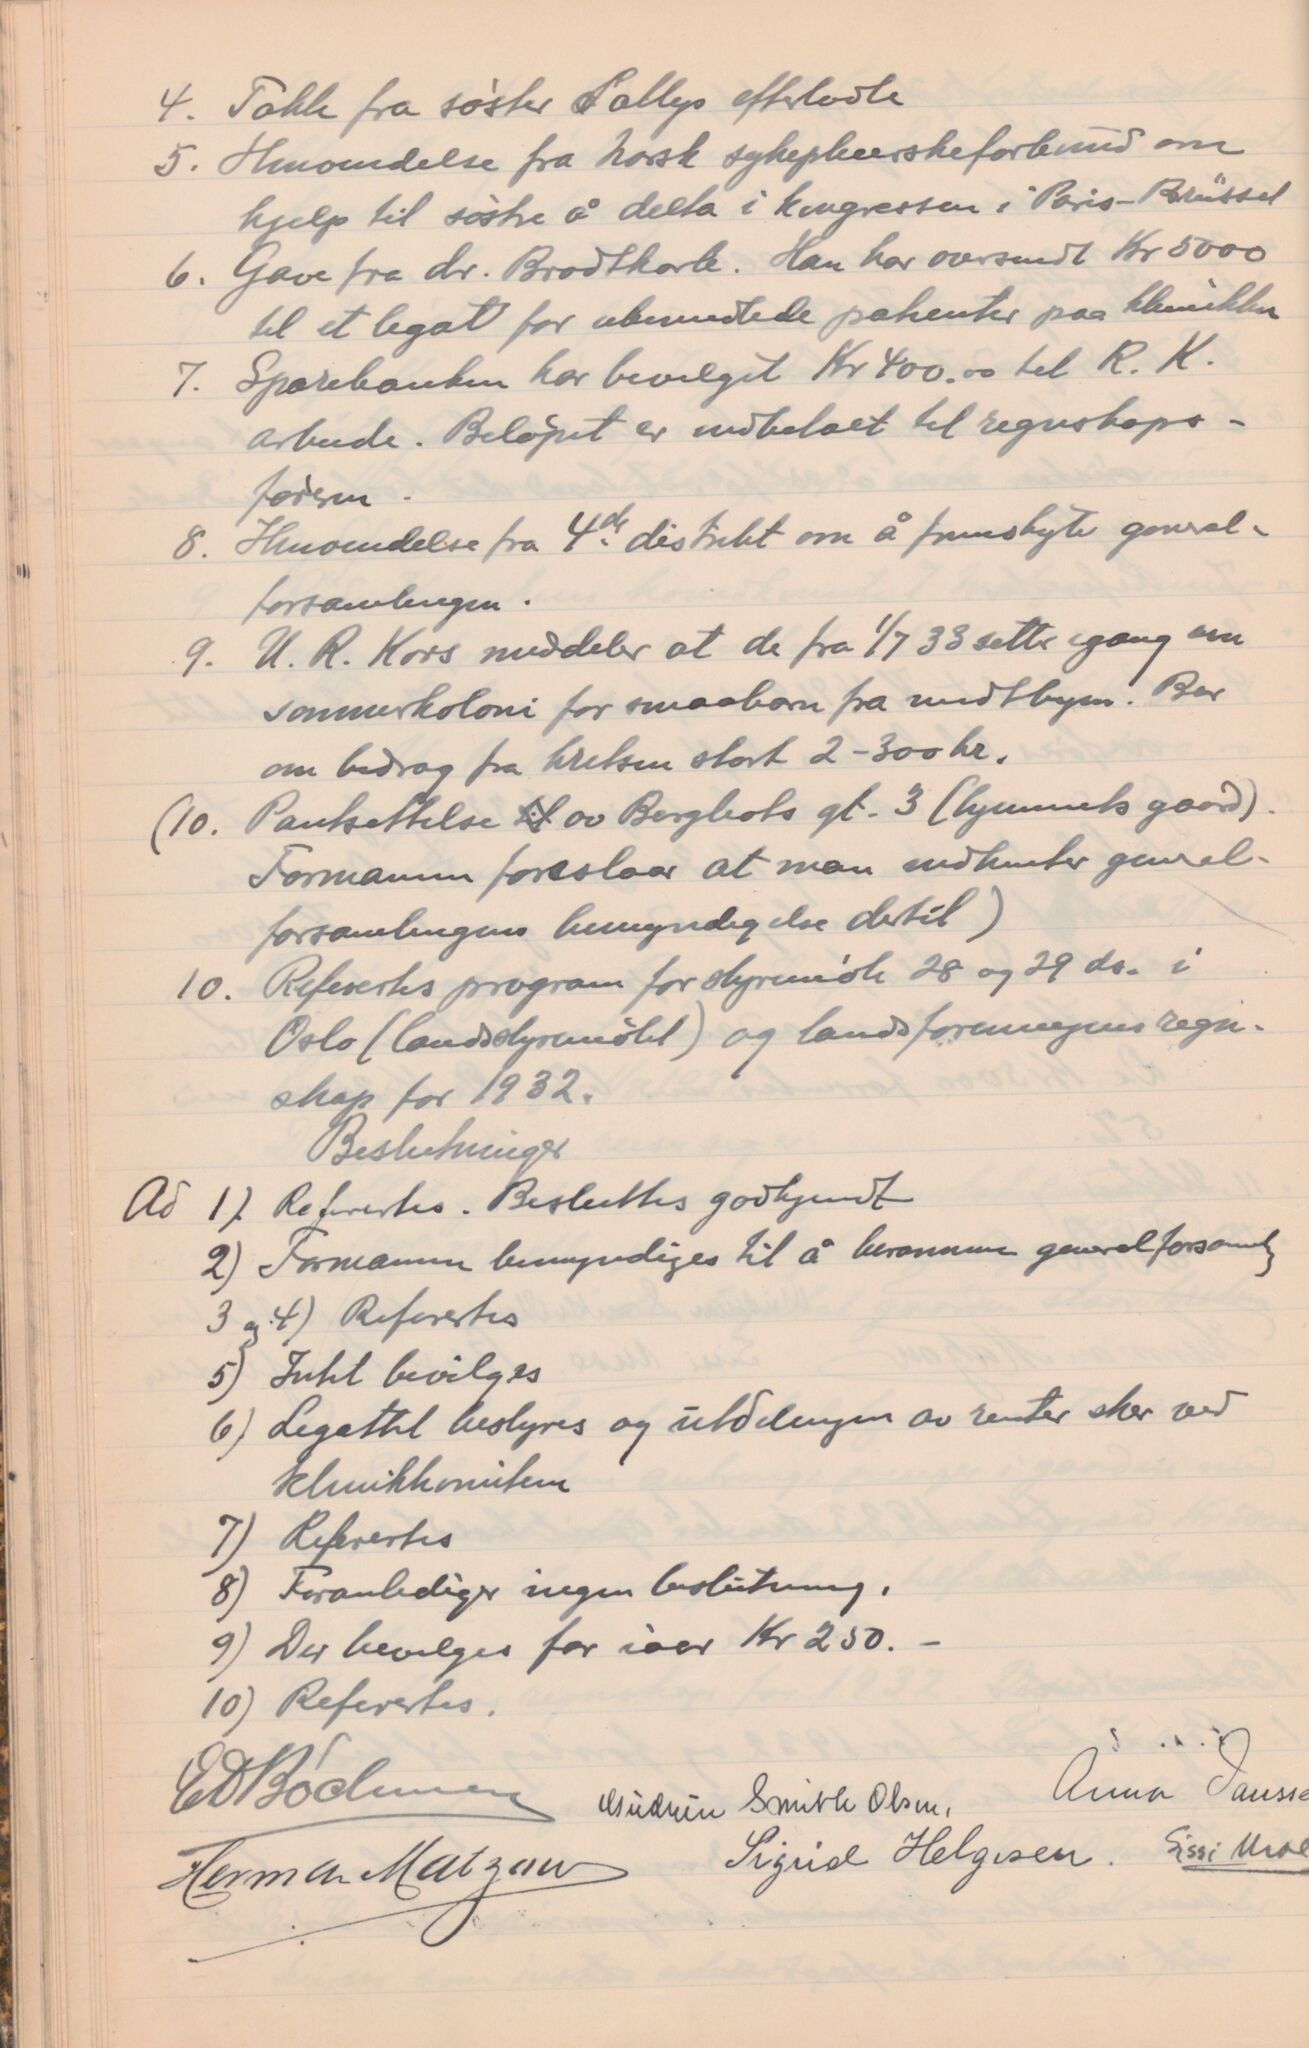 4. Takk fra søster Sallys efterladte
5. Henvendelse fra Norsk sykepleierskeforbund om
hjelp til søstre å delta i kongressen i Paris-Brüssel
6. Gave fra dr. Brodtkorb. Han har oversendt Kr 5000
til et legat for ubemidlede patienter paa klinikken
7. Sparebanken har bevilget Kr 400.00 til R. K.
arbeide. Beløpet er indbetalt til regnskaps-
føreren.
8. Henvendelse fra 4de distrikt om å fremskyte general-
forsamlingen.
9. U. R. Kors meddeler at de fra 1/7 33 setter igang en
sommerkoloni for smaabarn fra midtbyen. Ber
om bidrag fra kretsen stort 2-300 kr.
(10. Pantsettelse av Bergljots gt. 3 (hjemmets gaard).
Formannen foreslaar at man indhenter general-
forsamlingens bemyndigelse dertil)
10. Refertes program for styremöte 28 og 29 ds. i
Oslo (landsstyremötet) og landsforeningens regn-
skap for 1932.
Beslutninger
Ad 1). Refertes. Besluttes godkjendt
2) Formannen bemyndiges til å beramme generalforsaml
3 og 4) Refertes
5) Intet bevilges
6) Legattet bestyres og utdelingen av renter sker ved
klinikkomiteen
7) Refertes
8) Foranlediger ingen beslutning.
9) Der bevilges for iaar Kr 250.-
10) Refertes.
ED Bödtker Anna Jansse
Gudrun Smith Olsen.
Herman Matzow Sigrid Helgesen. Sissi